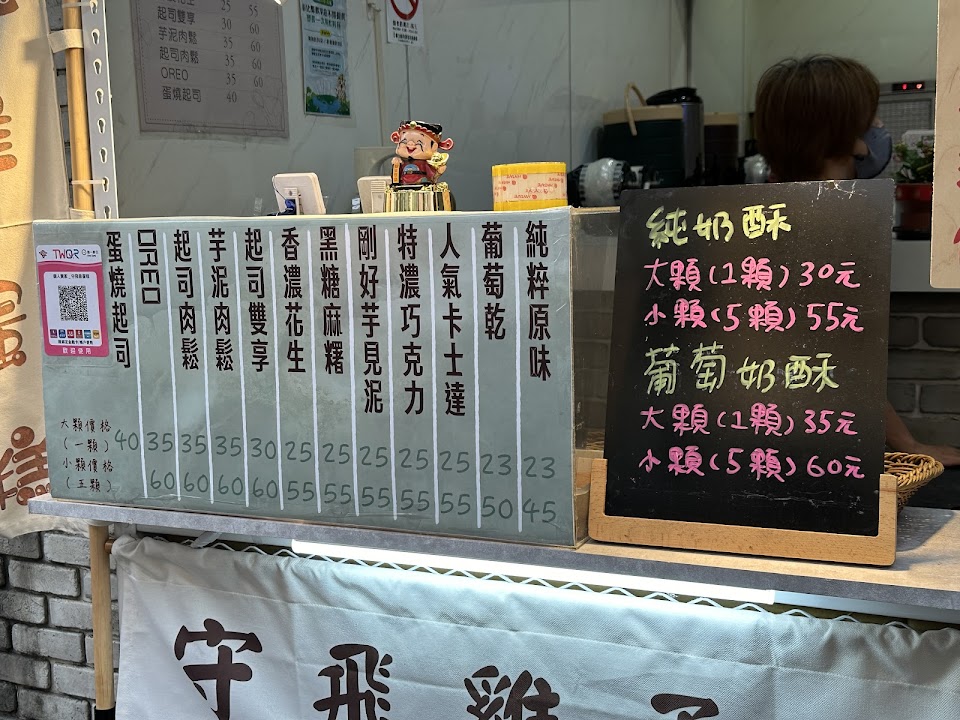 起司雙享 30 60
芋泥肉鬆 35 60
起司肉鬆 35 60
OREO 35 60
蛋燒起司 40
TWQR
歡迎使用
純粹原味 23 45
葡萄乾 23 50
人氣卡士達 25 55
特濃巧克力 25 55
剛好芋見泥 25 55
黑糖麻糬 25 55
香濃花生 25 55
起司雙享 30 60
芋泥肉鬆 35 60
起司肉鬆 35 60
OREO 35 60
蛋燒起司 40
大顆價格
(一顆)
小顆價格
(五顆)
純奶酥
大顆(1顆)30元
小顆(5顆)55元
葡萄奶酥
大顆(1顆)35元
小顆(5顆)60元
守飛雞